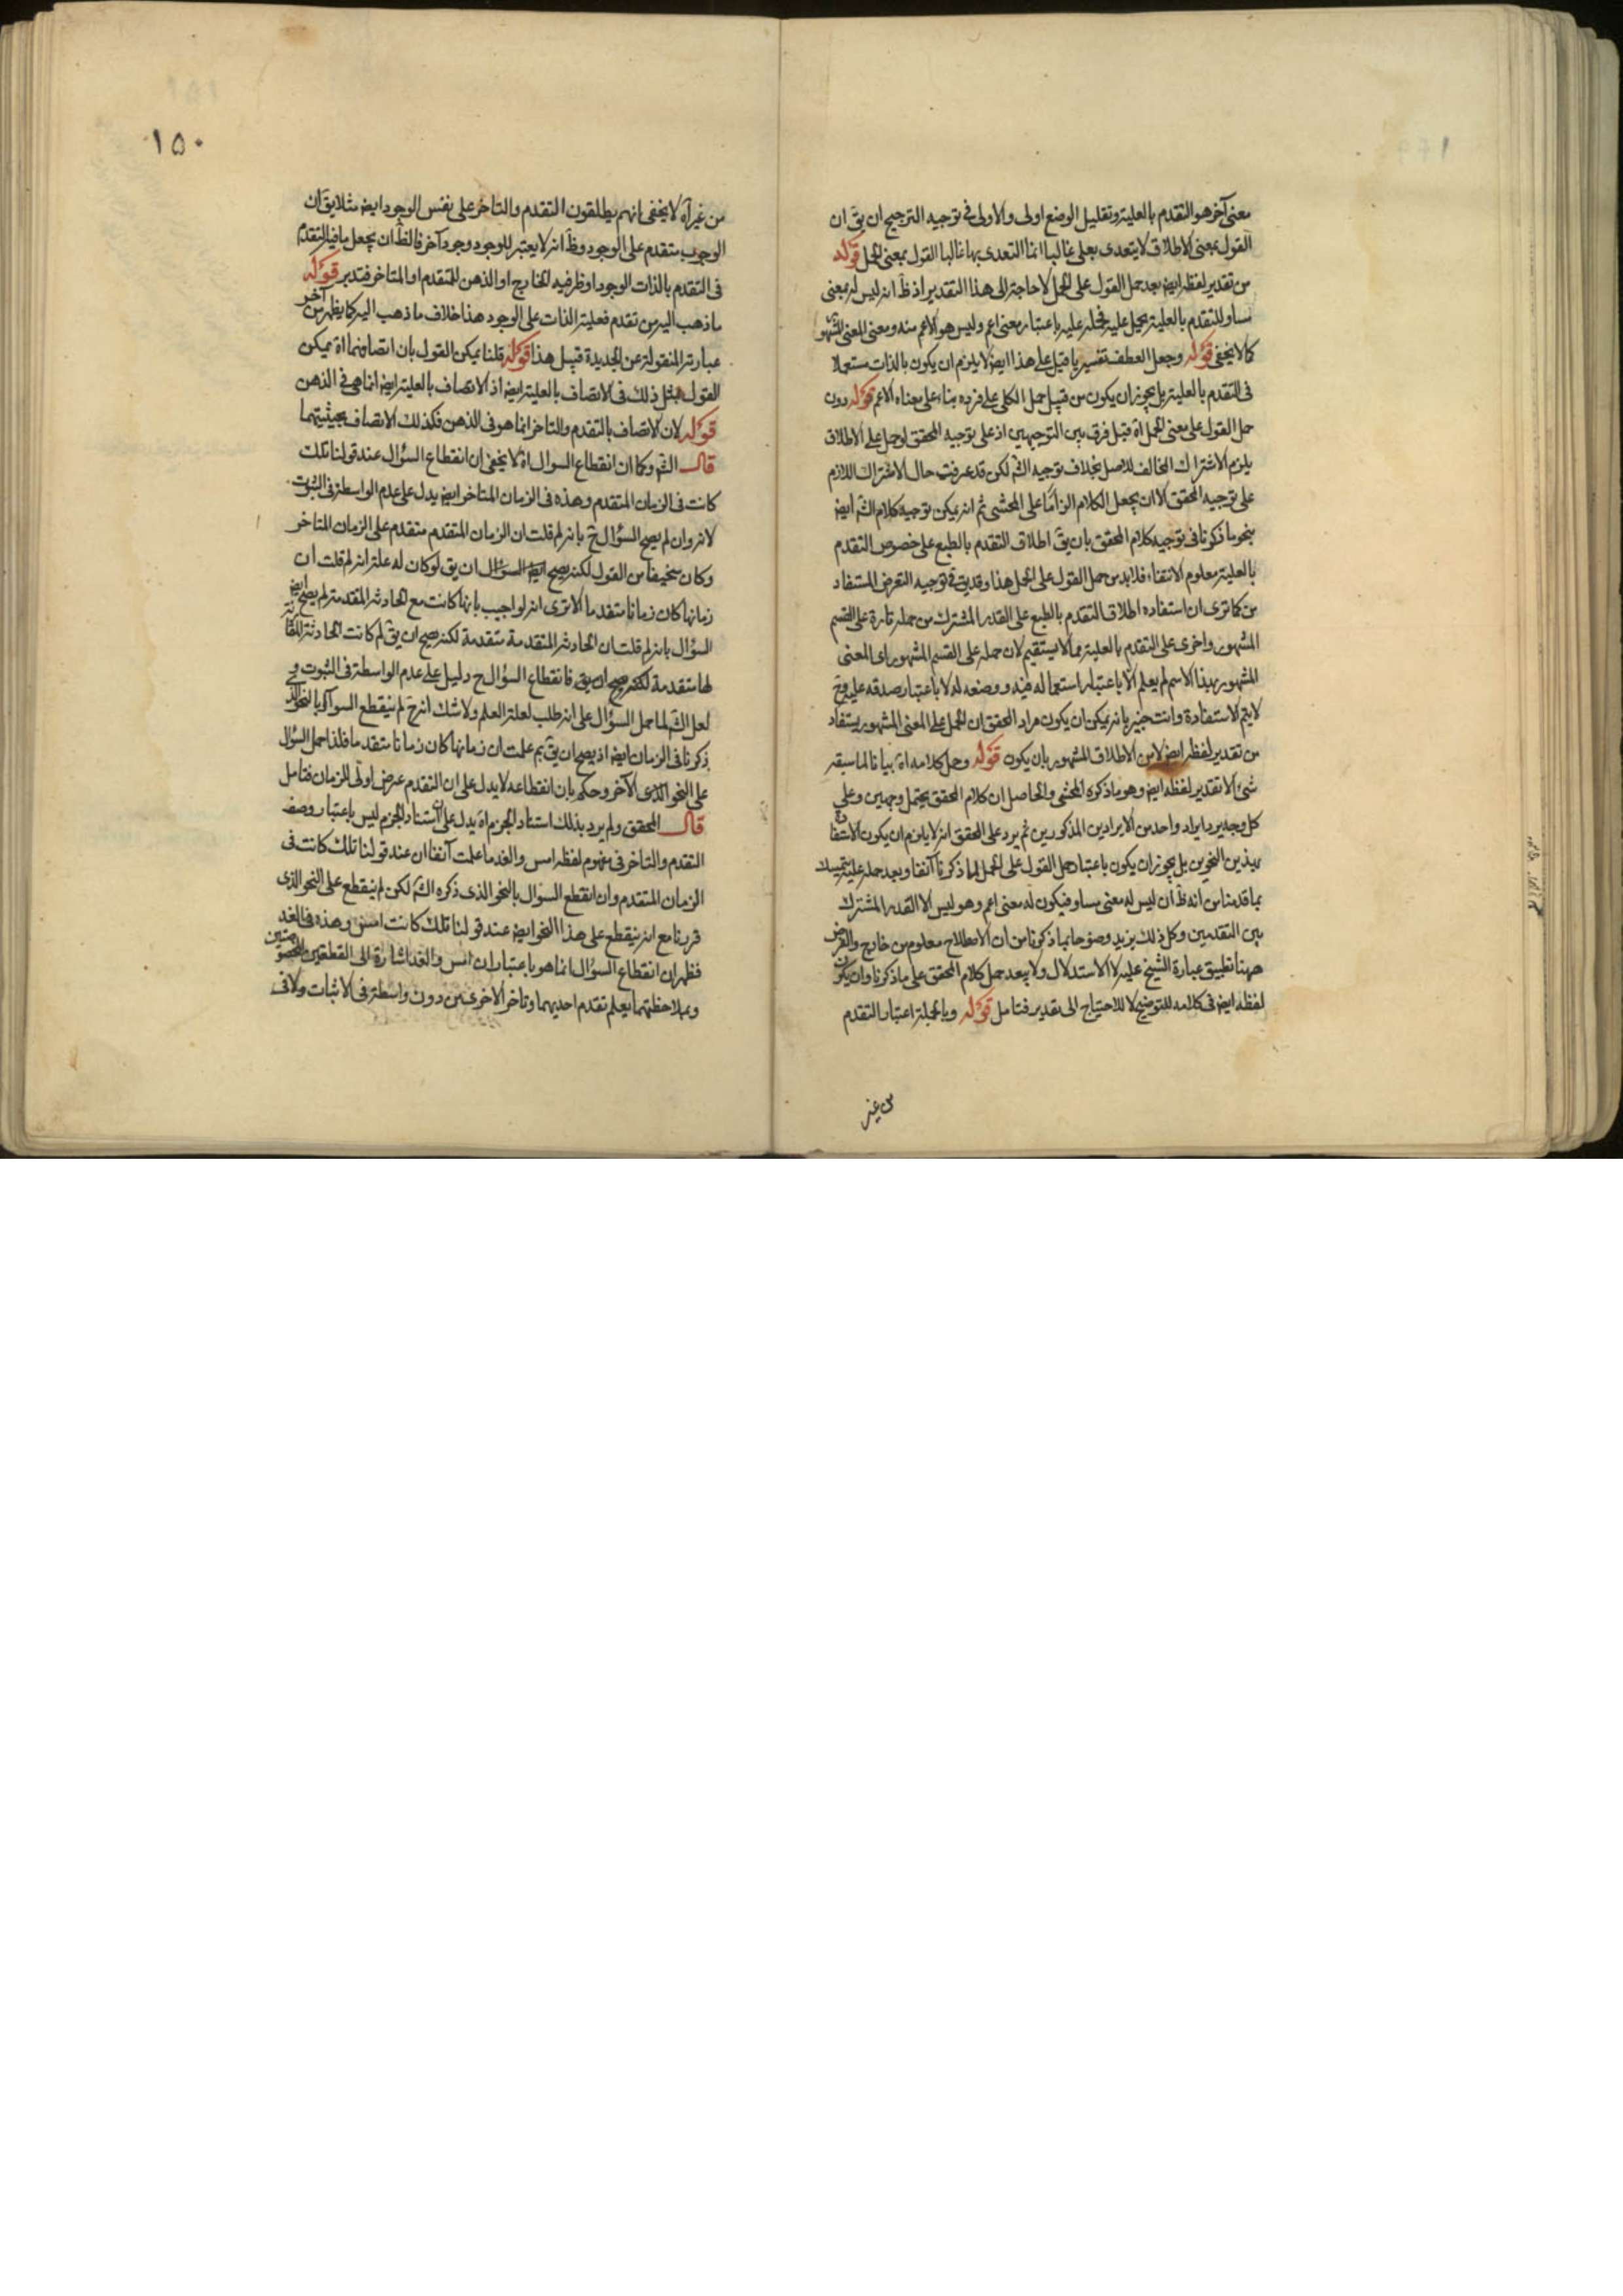 معنى آخر هو التقدم بالعلية وتقليل الوضع اولى والاولى فى توجيه الترجيح ان يق ان
القول بمعنى الاطلاق لا يتعدى بعلى غالبا انما التعدى بها غالبا القول بمعنى الحمل قوله
من تقدير لفظ ايض بعد حمل القول على الحمل لا حاجة الى هذا التقدير اذ ظ انه ليس له معنى
مساو للتقدم بالعلية يحمل عليه فحمله عليه باعتبار معنى اعم وليس هو الاعم منه ومعنى المعنى المشهور
كما لا يخفى قوله وجعل العطف تفسيريا قيل على هذا ايض لا يلزم ان يكون بالذات مستعملا
فى التقدم بالعلية بل يجوز ان يكون من قبيل حمل الكلى على فرده بناء على معناه الاعم قوله دون
حمل القول على معنى الحمل اه قيل فرق بين التوجيهين اذ على توجيه المحقق لو حمل على الاطلاق
يلزم الاشتراك المخالف للاصل بخلاف توجيه الش لكن قد عرفت حال الاشتراك اللازم
على توجيه المحقق الا ان يجعل الكلام الزاما على المحشى ثم انه يمكن توجيه كلام الش ايض
بنحو ما ذكرنا فى توجيه كلام المحقق بان يق اطلاق التقدم بالطبع على خصوص التقدم
بالعلية معلوم الانتفاء فلا بد من حمل القول على الحمل هذا وقد يق فى توجيه التعرض المستفاد
من كما ترى ان استفاده اطلاق التقدم بالطبع على القدر المشترك من حمله تارة على القسم
المشهور واخرى على التقدم بالعلية مما لا يستقيم لان حمله على القسم المشهور اى المعنى
المشهور بهذا الاسم لم يعلم الا باعتبار استعماله فيه ووضعه له لا باعتبار صدقه عليه وح
لا يتم الاستفادة وانت خبير بانه يمكن ان يكون مراد المحقق ان الحمل على المعنى المشهور يستفاد
من تقدير لفظ ايض لا من الاطلاق المشهور بان يكون قوله وحمل كلامه اه بيانا لما سبقه
شئ الا تقدير لفظ ايض وهو ما ذكره المحشى والحاصل ان كلام المحقق يحتمل وجهين وعلى
كل وجه يرد ايراد واحد من الايرادين المذكورين ثم يرد على المحقق انه لا يلزم ان يكون الاستفادة
بهذين النحوين بل يجوز ان يكون باعتبار حمل القول على الحمل لما ذكرنا آنفا وبعد حمله عليه يتمسك
بما قدمنا من انه ظ ان ليس له معنى مساو فيكون له معنى اعم وهو ليس الا القدر المشترك
بين التقدمين وكل ذلك يزيد وضوحا بما ذكرنا من ان الاصطلاح معلوم من خارج والغرض
ههنا تطبيق عبارة الشيخ عليه لا الاستدلال ولا يبعد حمل كلام المحقق على ما ذكرنا وان يكون
لفظ ايض فى كلامه للتوضيح لا للاحتياج الى تقدير فتامل قوله وبالجملة اعتبار التقدم
من غير
١٥٠
من غير اه لا يخفى انهم يطلقون التقدم والتاخر على نفس الوجود ايض مثلا يق ان
الوجوب متقدم على الوجود وظ انه لا يعتبر للوجود وجود آخر فالظ ان يجعل ما فيه التقدم
فى التقدم بالذات الوجود او ظرفيه الخارج او الذهن للمتقدم او المتاخر فتدبر قوله
ما ذهب اليه من تقدم فعلية الذات على الوجود هذا خلاف ما ذهب اليه كما يظهر من آخر
عبارته المنقولة عن الجديدة قبيل هذا قوله قلنا يمكن القول بان اتصافهما اه يمكن
القول بمثل ذلك فى الاتصاف بالعلية ايض اذ الاتصاف بالعلية ايض انما هى فى الذهن
قوله لان الاتصاف بالتقدم والتاخر انما هو فى الذهن فكذلك الاتصاف بحيثيتهما
قال الش وكما ان انقطاع السوال اه لا يخفى ان انقطاع السؤال عند قولنا تلك
كانت فى الزمان المتقدم وهذه فى الزمان المتاخر ايض يدل على عدم الواسطة فى الثبوت
لانه وان لم يصح السؤال ح بانه لم قلت ان الزمان المتقدم متقدم على الزمان المتاخر
وكان سخيفا من القول لكنه يصح ايض السؤال ان يق لو كان له علة انه لم قلت ان
زمانها كان زمانا متقدما الا ترى انه لو اجيب بانها كانت مع الحادثة المتقدمة لم يصح ايض
السؤال بانه لم قلت ان الحادثة المتقدمة متقدمة لكنه يصح ان يق لم كانت الحادثة المقارنة
لها متقدمة لكنه يصح ان يق فانقطاع السؤال ح دليل على عدم الواسطة فى الثبوت و
لعل الش لما حمل السؤال على انه طلب لعلة العلم ولا شك انه ح لم ينقطع السوال بالنحو الذى
ذكرنا فى الزمان ايض اذ يصح ان يق بم علمت ان زمانها كان زمانا متقدما فلذا حمل السؤال
على النحو الذى الآخر وحكم بان انقطاعه لا يدل على ان التقدم عرض اولى للزمان فتامل
قال المحقق ولم يرد بذلك استناد الجزم اه يدل على ان استناد الجزم ليس باعتبار وصف
التقدم والتاخر فى مفهوم لفظ امس والغد ما علمت آنفا ان عند قولنا تلك كانت فى
الزمان المتقدم وان انقطع السؤال بالنحو الذى ذكره الش لكن لم ينقطع على النحو الذى
قررنا مع انه ينقطع على هذا النحو ايض عند قولنا تلك كانت امس وهذه فى الغد
فظهر ان انقطاع السؤال انما هو باعتبار ان امس والغد اشارة الى القطعتين المخصوصتين
وبملاحظتهما يعلم تقدم احديهما وتاخر الاخرى من دون واسطة فى الاثبات ولا فى